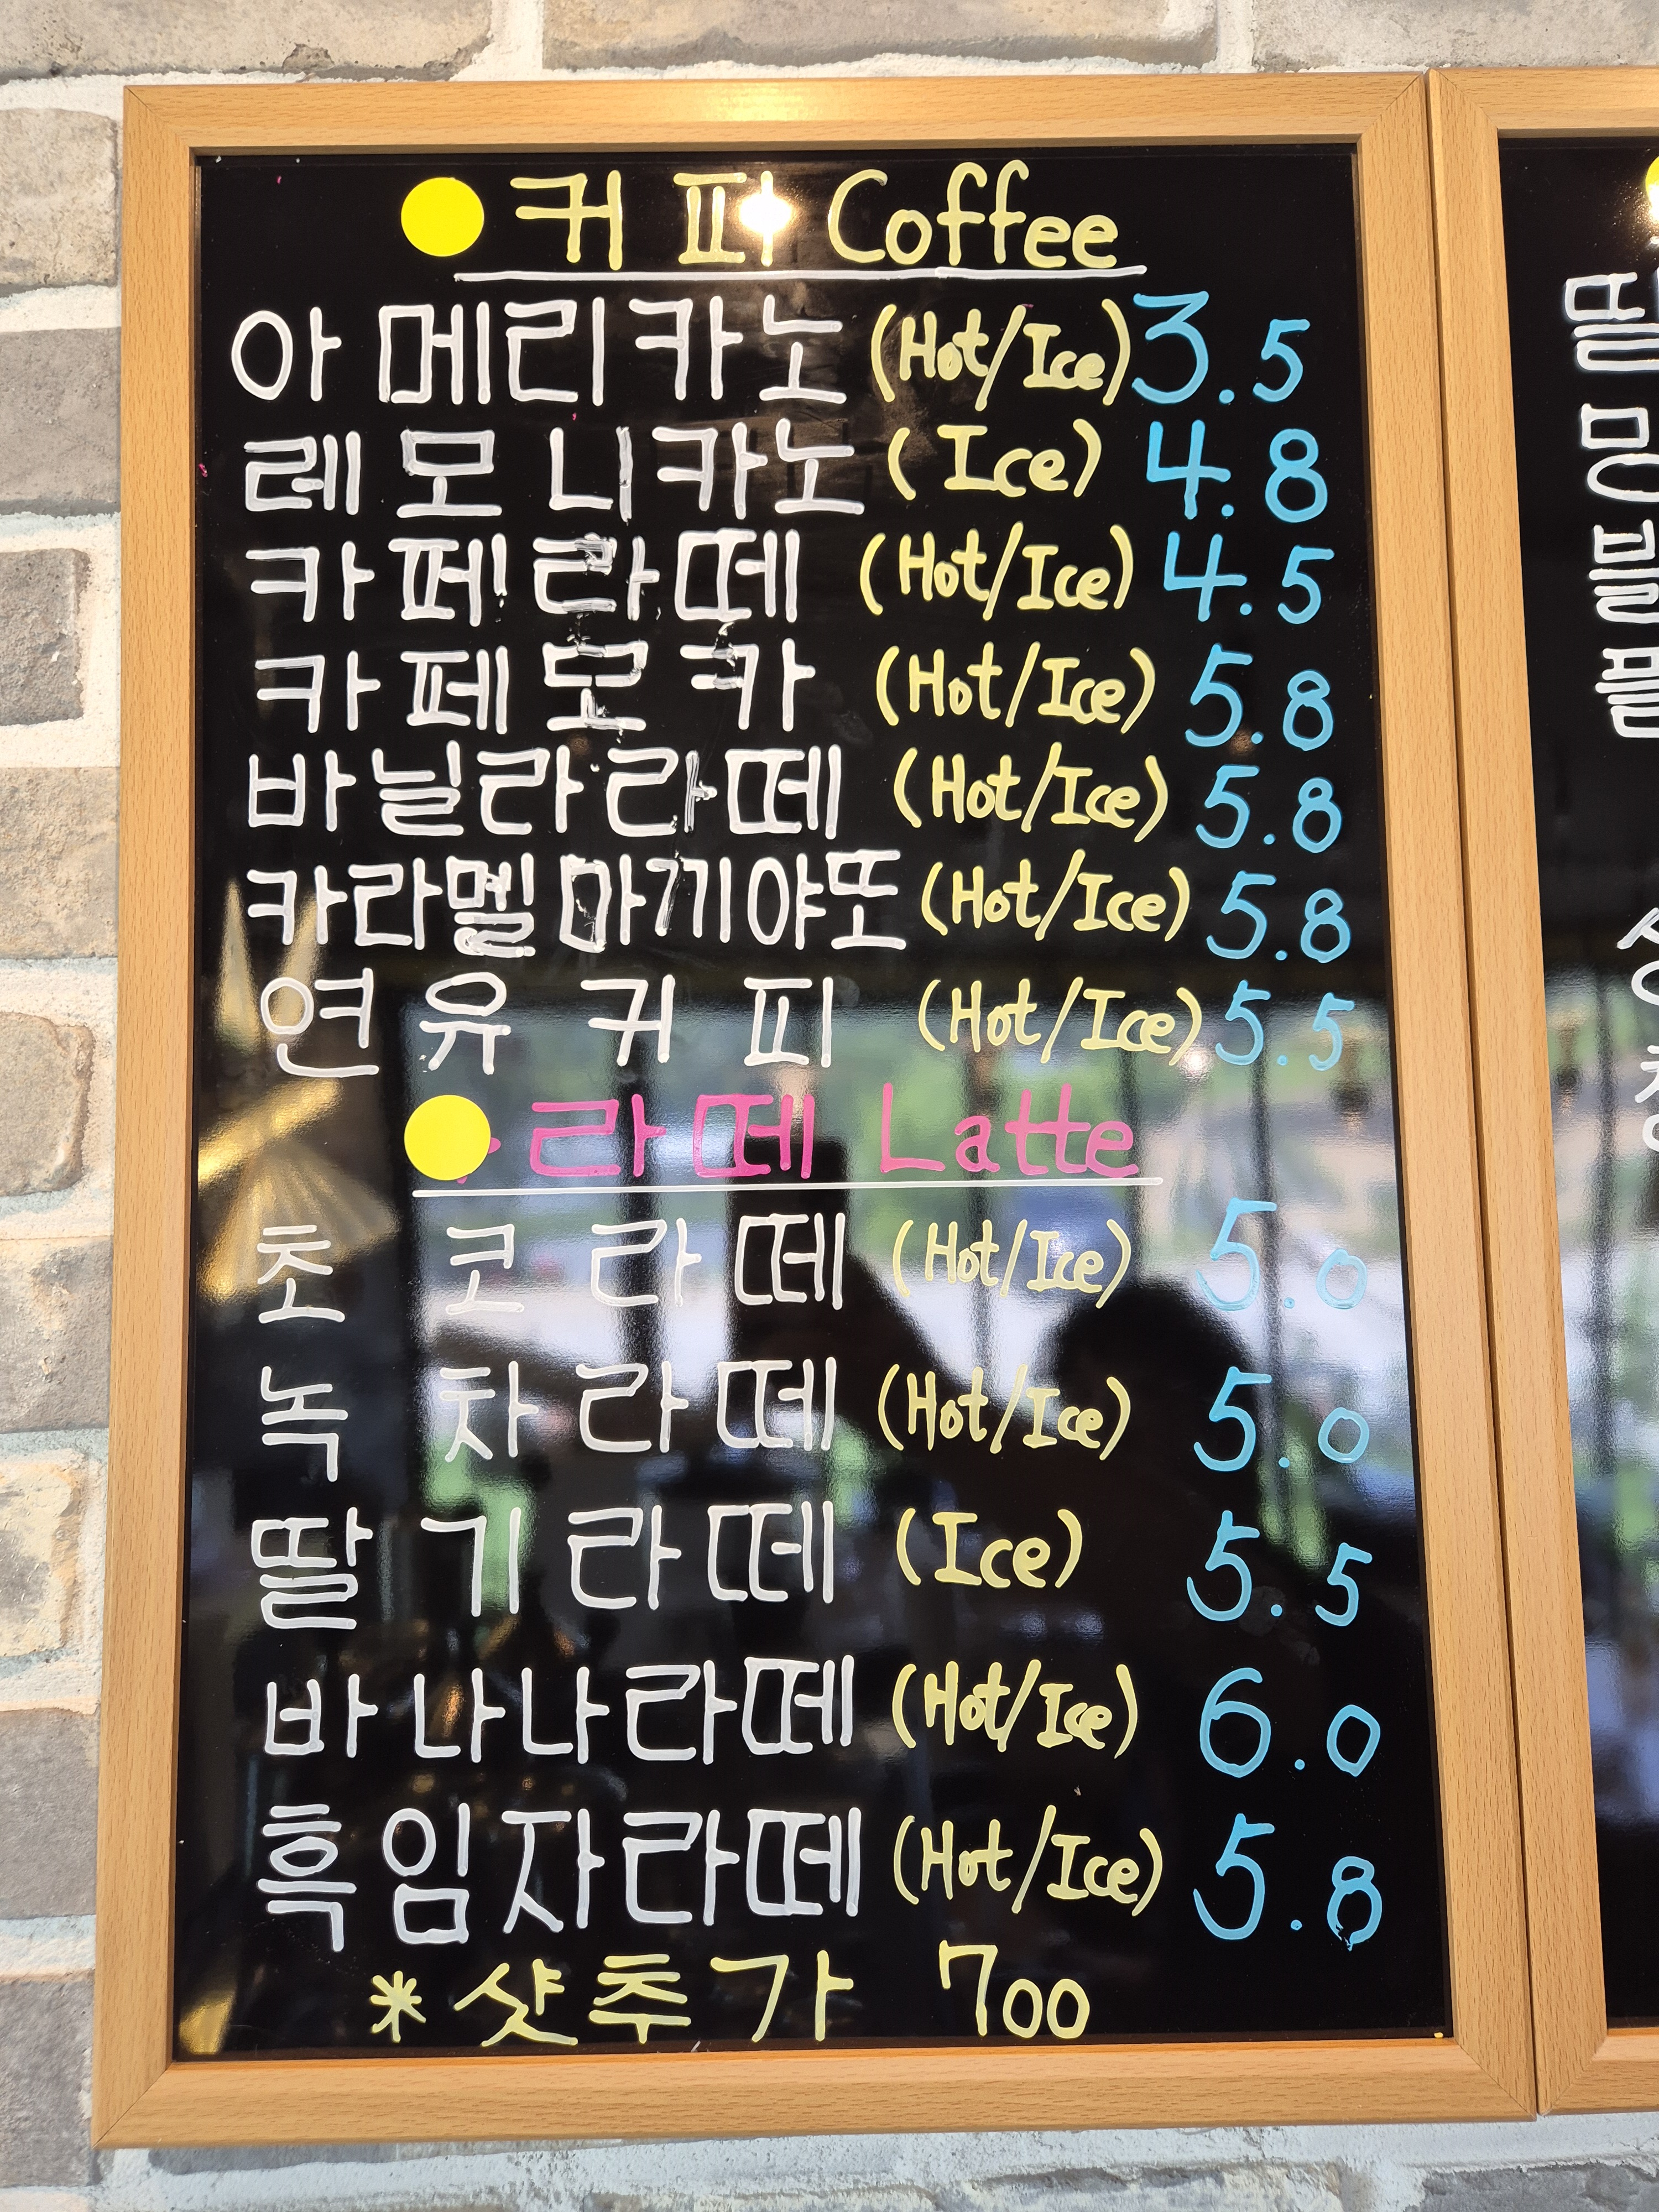 커피 Coffee
아메리카노 (Hot/Ice) 3.5
레모니카노 (Ice) 4.8
카페라떼 (Hot/Ice) 4.5
카페모카 (Hot/Ice) 5.8
바닐라라떼 (Hot/Ice) 5.8
카라멜마끼야또 (Hot/Ice) 5.8
연유커피 (Hot/Ice) 5.5
라떼 Latte
초코라떼 (Hot/Ice) 5.0
녹차라떼 (Hot/Ice) 5.0
딸기라떼 (Ice) 5.5
바나나라떼 (Hot/Ice) 6.0
흑임자라떼 (Hot/Ice) 5.8
* 샷추가 700